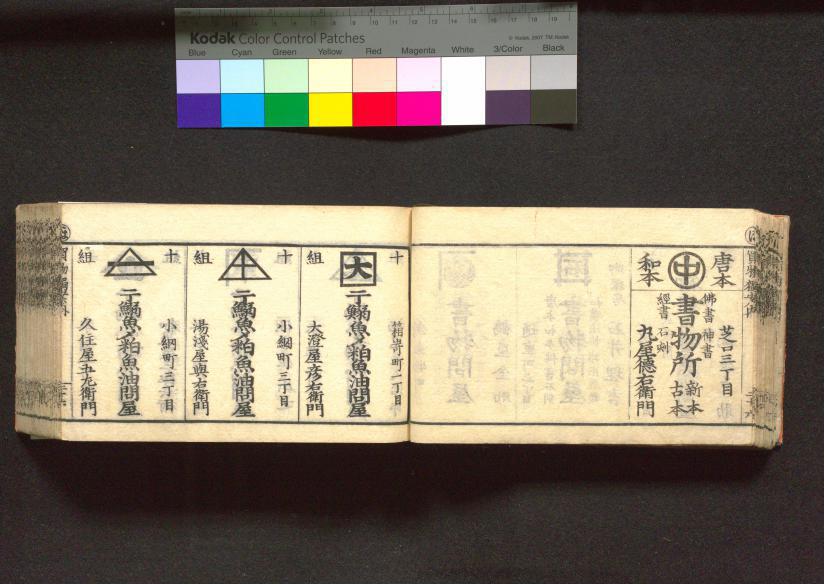 Kodak Color Control Patches
© Kodak, 2007 TM: Kodak
Blue Cyan Green Yellow Red Magenta White 3/Color Black
唐本
中
和本
芝口三丁目
佛書 神書
經書 石刻
書物所
新本
古本
丸屋德右衛門
十
大
組
箱崎町一丁目
干鰯魚〆粕魚油問屋
大澄屋彦右衛門
十
組
小網町三丁目
干鰯魚〆粕魚油問屋
湯淺屋與右衛門
十
組
小網町三丁目
干鰯魚〆粕魚油問屋
久住屋五左衛門